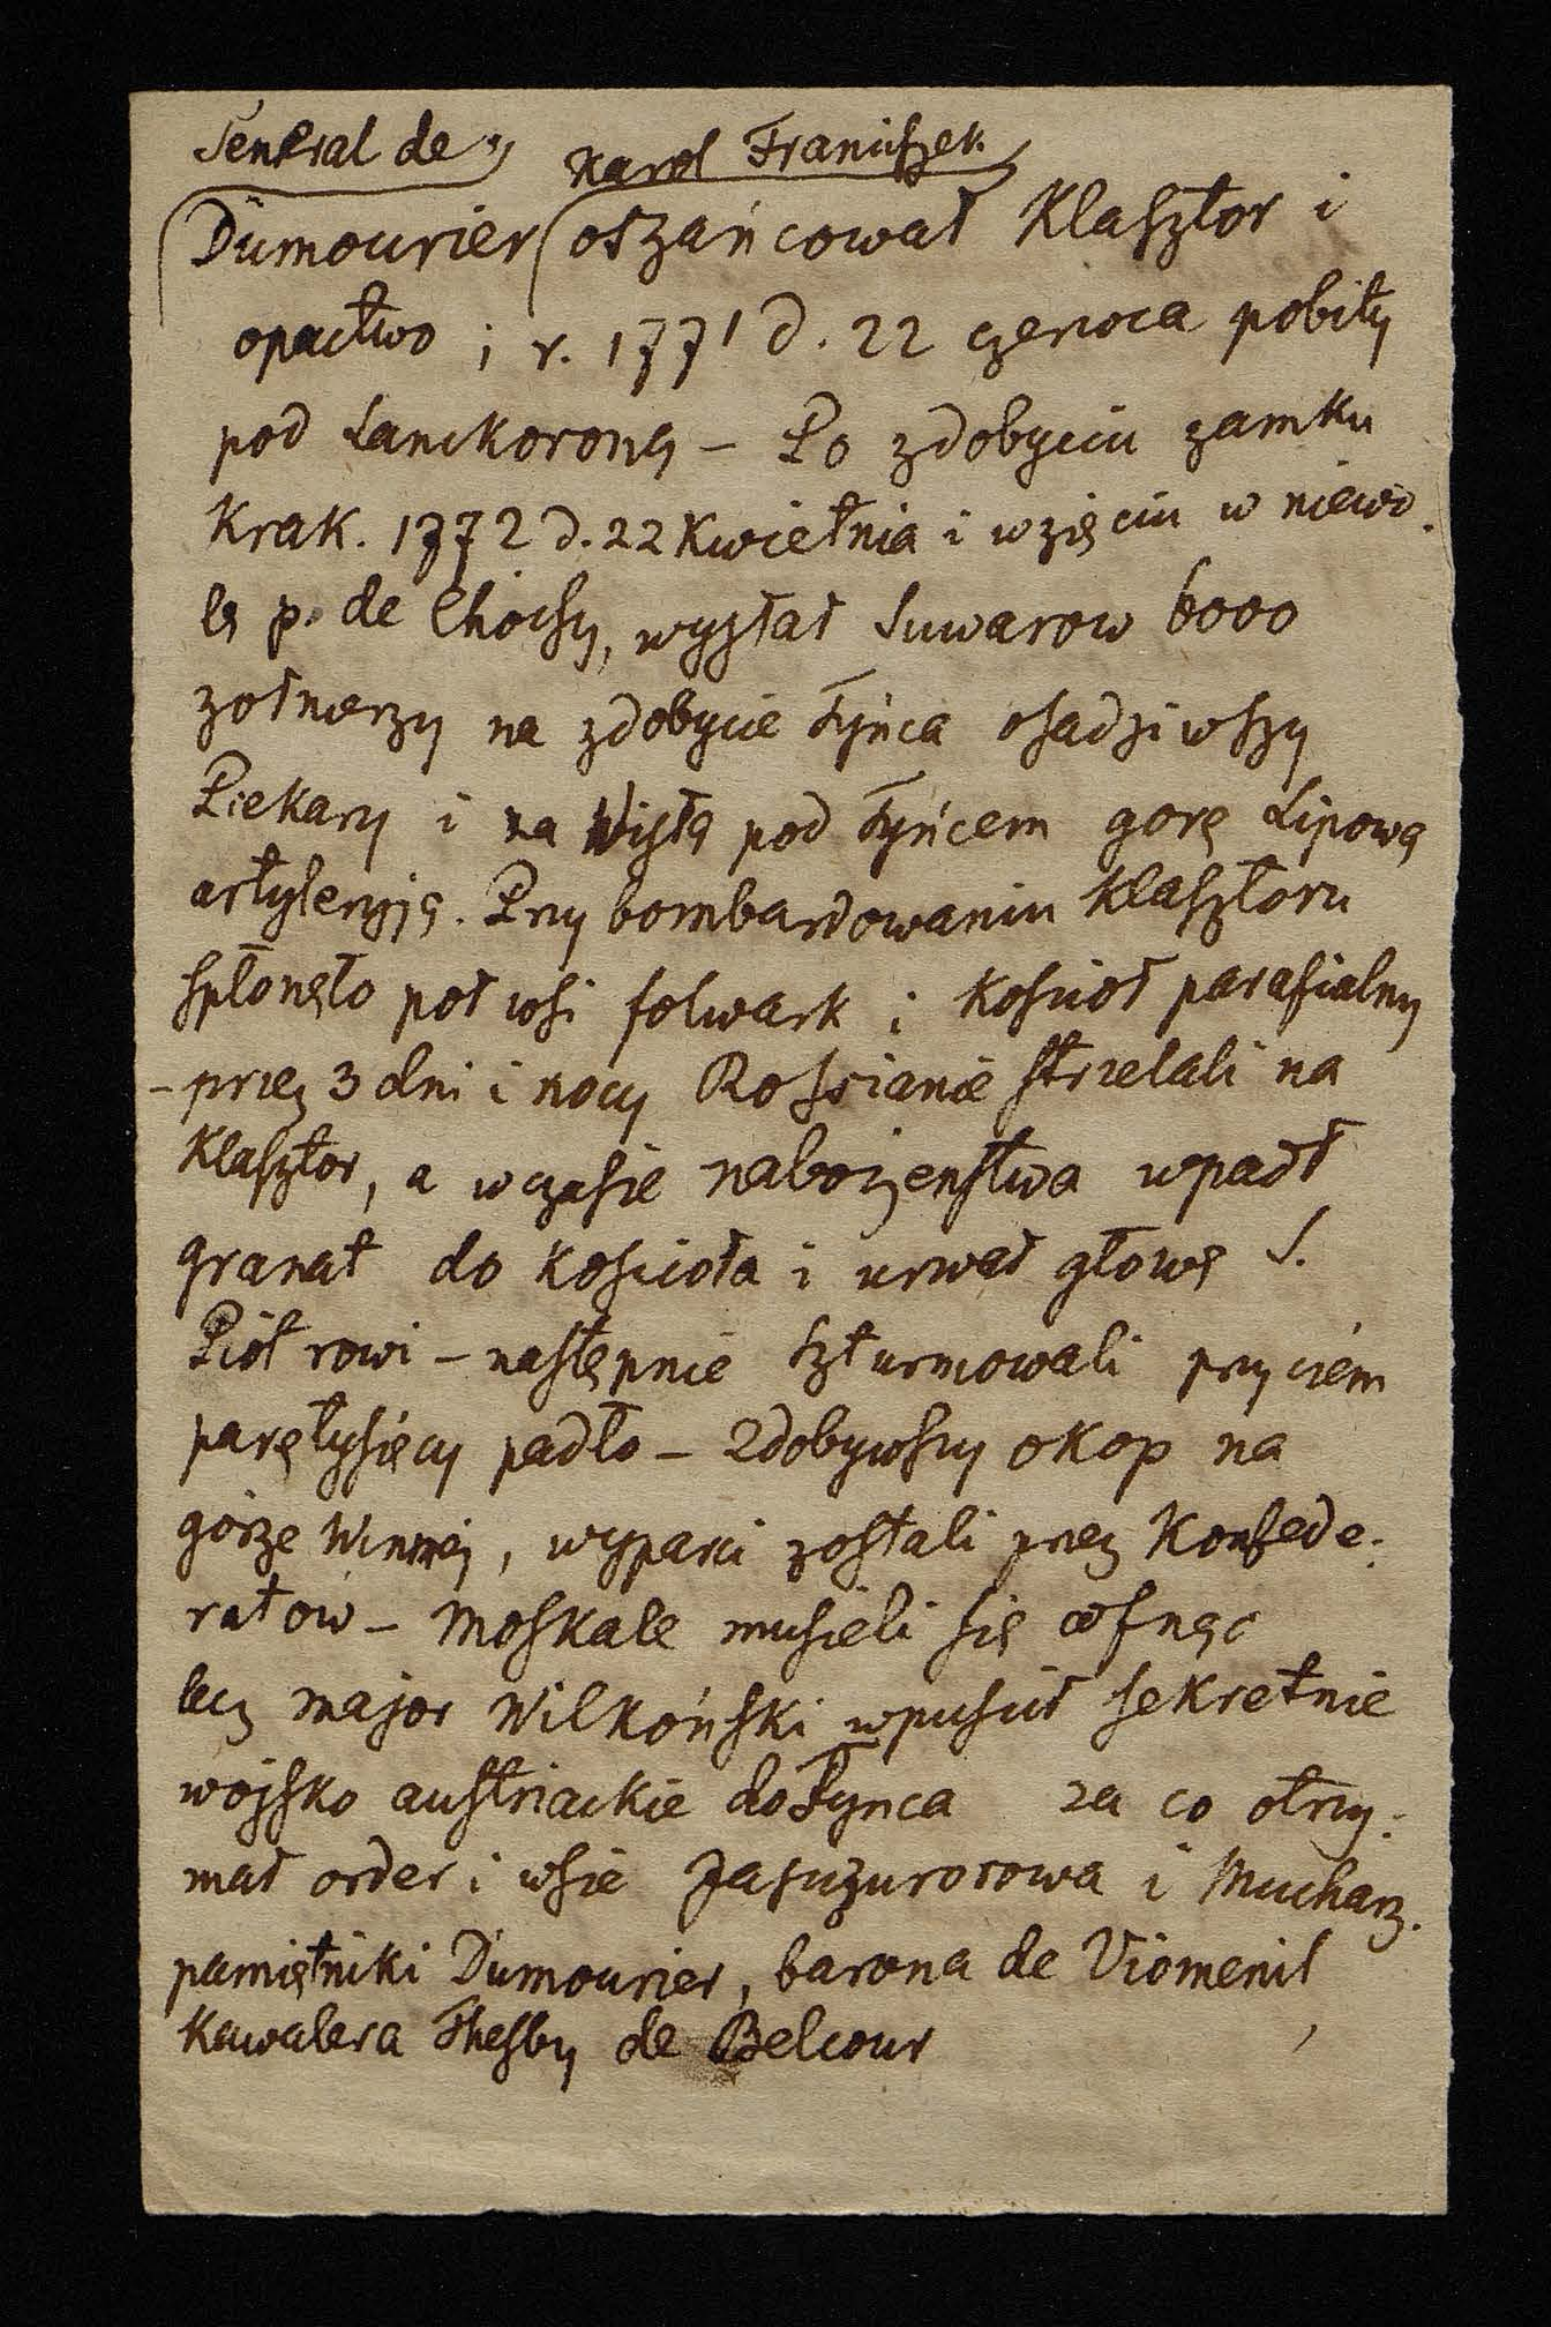 Jenerał de Karol Franciszek
Dumourier oszańcował Klasztor i
opactwo i r. 1771 d. 22 czerwca pobity
pod Lanckoroną – Po zdobyciu zamku
Krak. 1772 d. 22 Kwietnia i wzięciu w niewo
lę p. de Choisy, wysłał Suwarow 6000
żołnierzy na zdobycie Tyńca osadziwszy
Piekary i na Wisłą pod Tyńcem górę Lipową
artyleryją. Przy bombardowaniu Klasztoru
spłonęło pół wsi folwark i Kosciół parafialny
– przez 3 dni i nocy Rossianie strzelali na
Klasztor, a w czasie nabożenstwa wpadł
granat do Kościoła i urwał głowę S.
Piotrowi – następnie szturmowali przyczém
parętysięcy padło – Zdobywszy okop na
górze Winnej, wyparci zostali przez Konfede:
ratów – Moskale musieli się cofnąć
lecz major Wilkoński wpuścił sekretnie
wojsko austriackie do Tynca za co otrzy:
mał order i wsie i Mucharz.
pamiętniki Dumourier, barona de Viomenil
Kawalera Thesby de Belcour